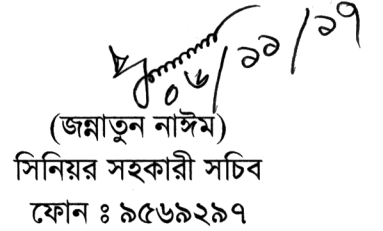 ০৬/১১/১৭
(জন্নাতুন নাঈম)
সিনিয়র সহকারী সচিব
ফোন ঃ ৯৫৬৯২৯৭